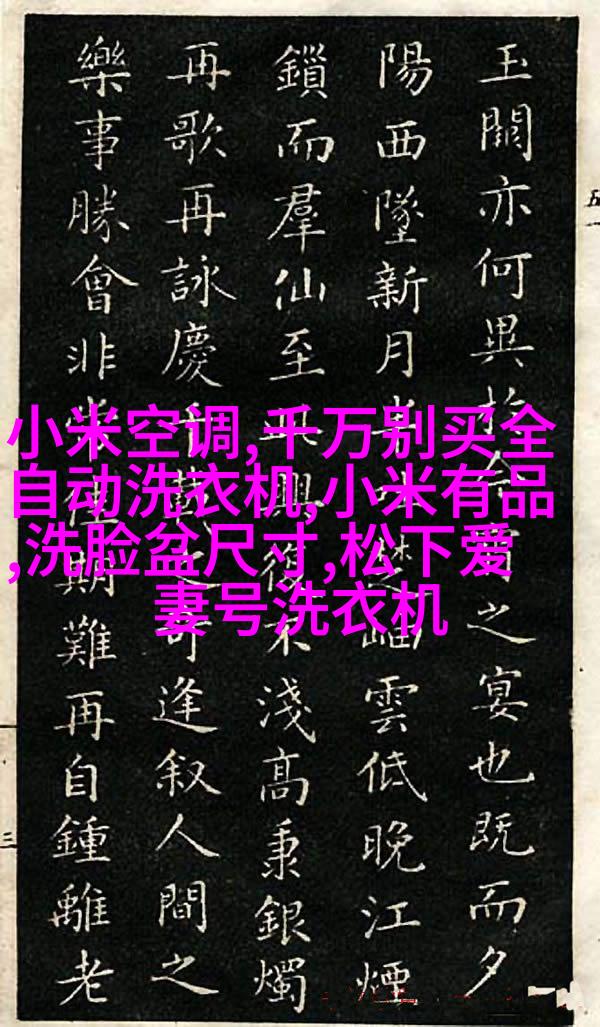 玉闕亦何異於之宴也既而夕
陽西墜新月雲低晚江煙
鎖而羣仙至興復不淺高秉銀燭
再歌再詠慶千載奇逢叙人間之
樂事勝會非常期難再自鍾離老
小米空调,千万别买全
自动洗衣机,小米有品
,洗脸盆尺寸,松下爱
妻号洗衣机